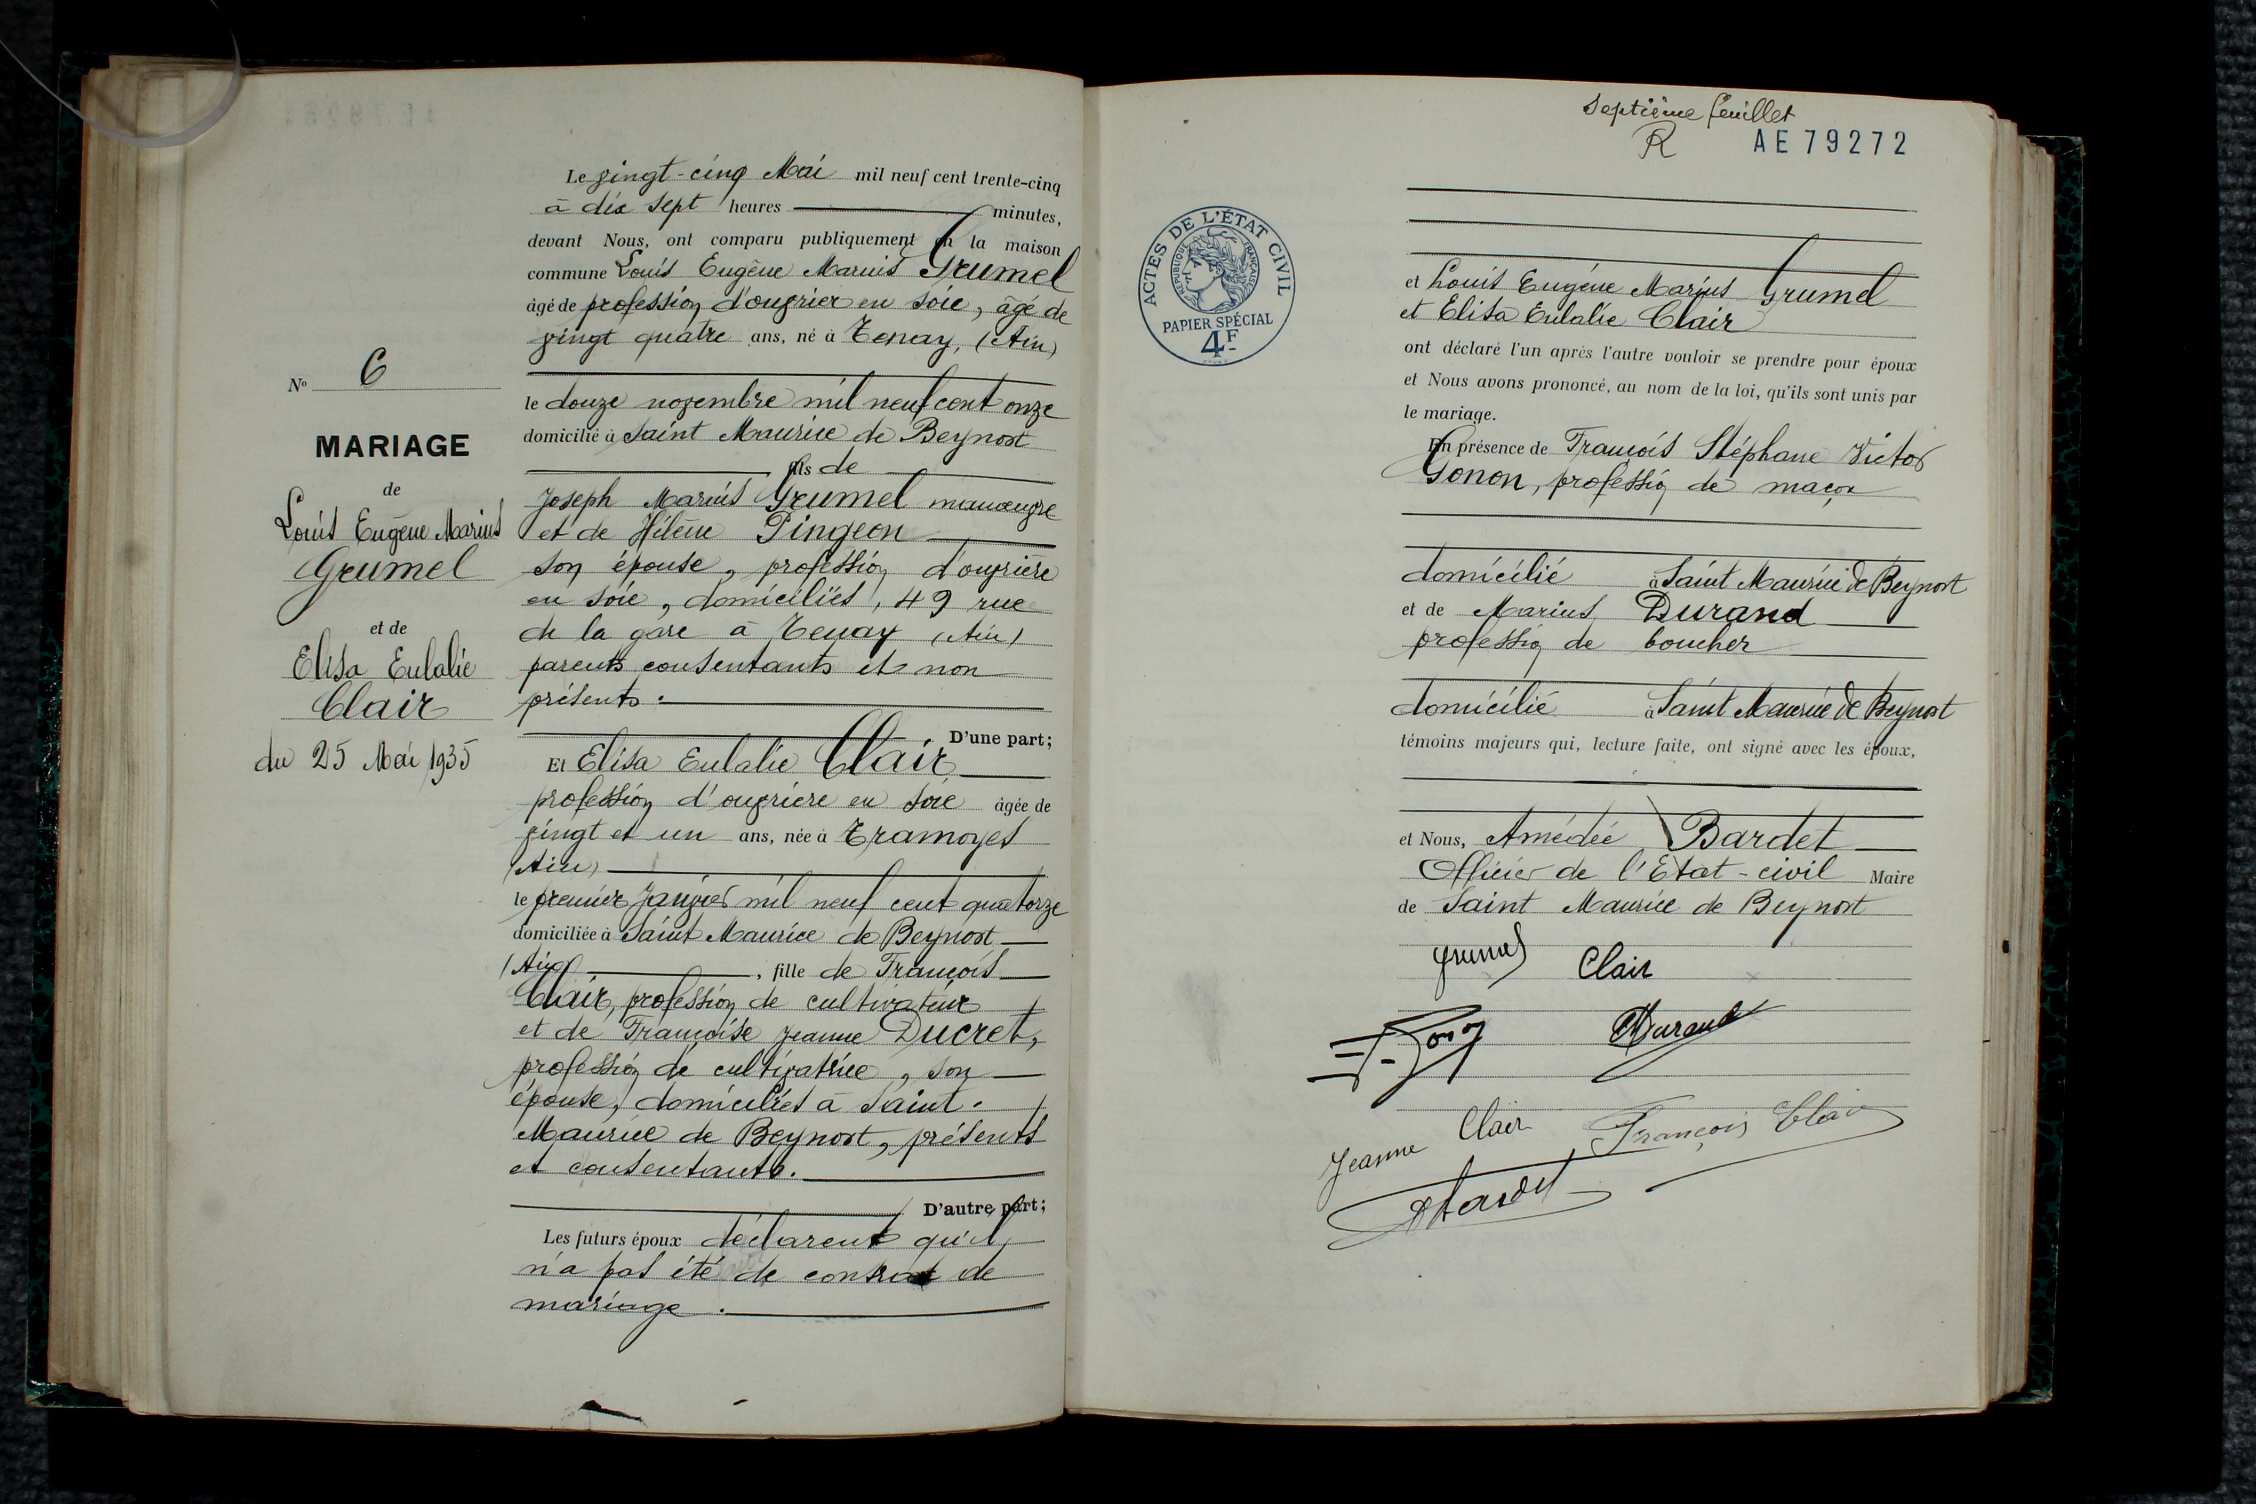 Le vingt-cinq Mai mil neuf cent trente-cinq
à dix sept heures minutes,
devant Nous, ont comparu publiquement en la maison
commune Louis Eugène Marius Grumel
âgé de profession d'ouvrier en soie, âgé de
vingt quatre ans, né à Tenay, (Ain)
le douze novembre mil neuf cent onze
domicilié à Saint Maurice de Beynost
fils de
Joseph Marius Grumel manœuvre
et de Hélène Pingeon
son épouse, profession d'ouvrière
en soie, domiciliés, 49 rue
de la gare à Tenay (Ain)
parents consentants et non
présents.
D'une part;
Et Elisa Eulalie Clair
profession d'ouvrière en soie âgée de
vingt et un ans, née à Tramoyes
(Ain)
le premier Janvier mil neuf cent quatorze
domiciliée à Saint Maurice de Beynost
(Ain), fille de François
Clair, profession de cultivateur
et de Françoise Jeanne Ducret,
profession de cultivatrice, son
épouse, domiciliés à Saint.
Maurice de Beynost, présents
et consentants.
D'autre part;
Les futurs époux déclarent qu'il
n'a pas été de contrat de
mariage.
No 6
MARIAGE
de
Louis Eugène Marius
Grumel
et de
Elisa Eulalie
Clair
du 25 Mai 1935
Septième feuillet
R AE 79272
ACTES DE L'ÉTAT CIVIL
RÉPUBLIQUE FRANÇAISE
PAPIER SPÉCIAL
4F
et Louis Eugène Marius Grumel
et Elisa Eulalie Clair
ont déclaré l'un après l'autre vouloir se prendre pour époux
et Nous avons prononcé, au nom de la loi, qu'ils sont unis par
le mariage.
En présence de François Stéphane Victor
Gonon, profession de maçon
domicilié à Saint Maurice de Beynost
et de Marius Durand
profession de boucher
domicilié à Saint Maurice de Beynost
témoins majeurs qui, lecture faite, ont signé avec les époux,
et Nous, Amédée Bardet
Officier de l'Etat-civil Maire
de Saint Maurice de Beynost
Grumel Clair
Gonon Durand
Jeanne Clair François Clair
ABardet